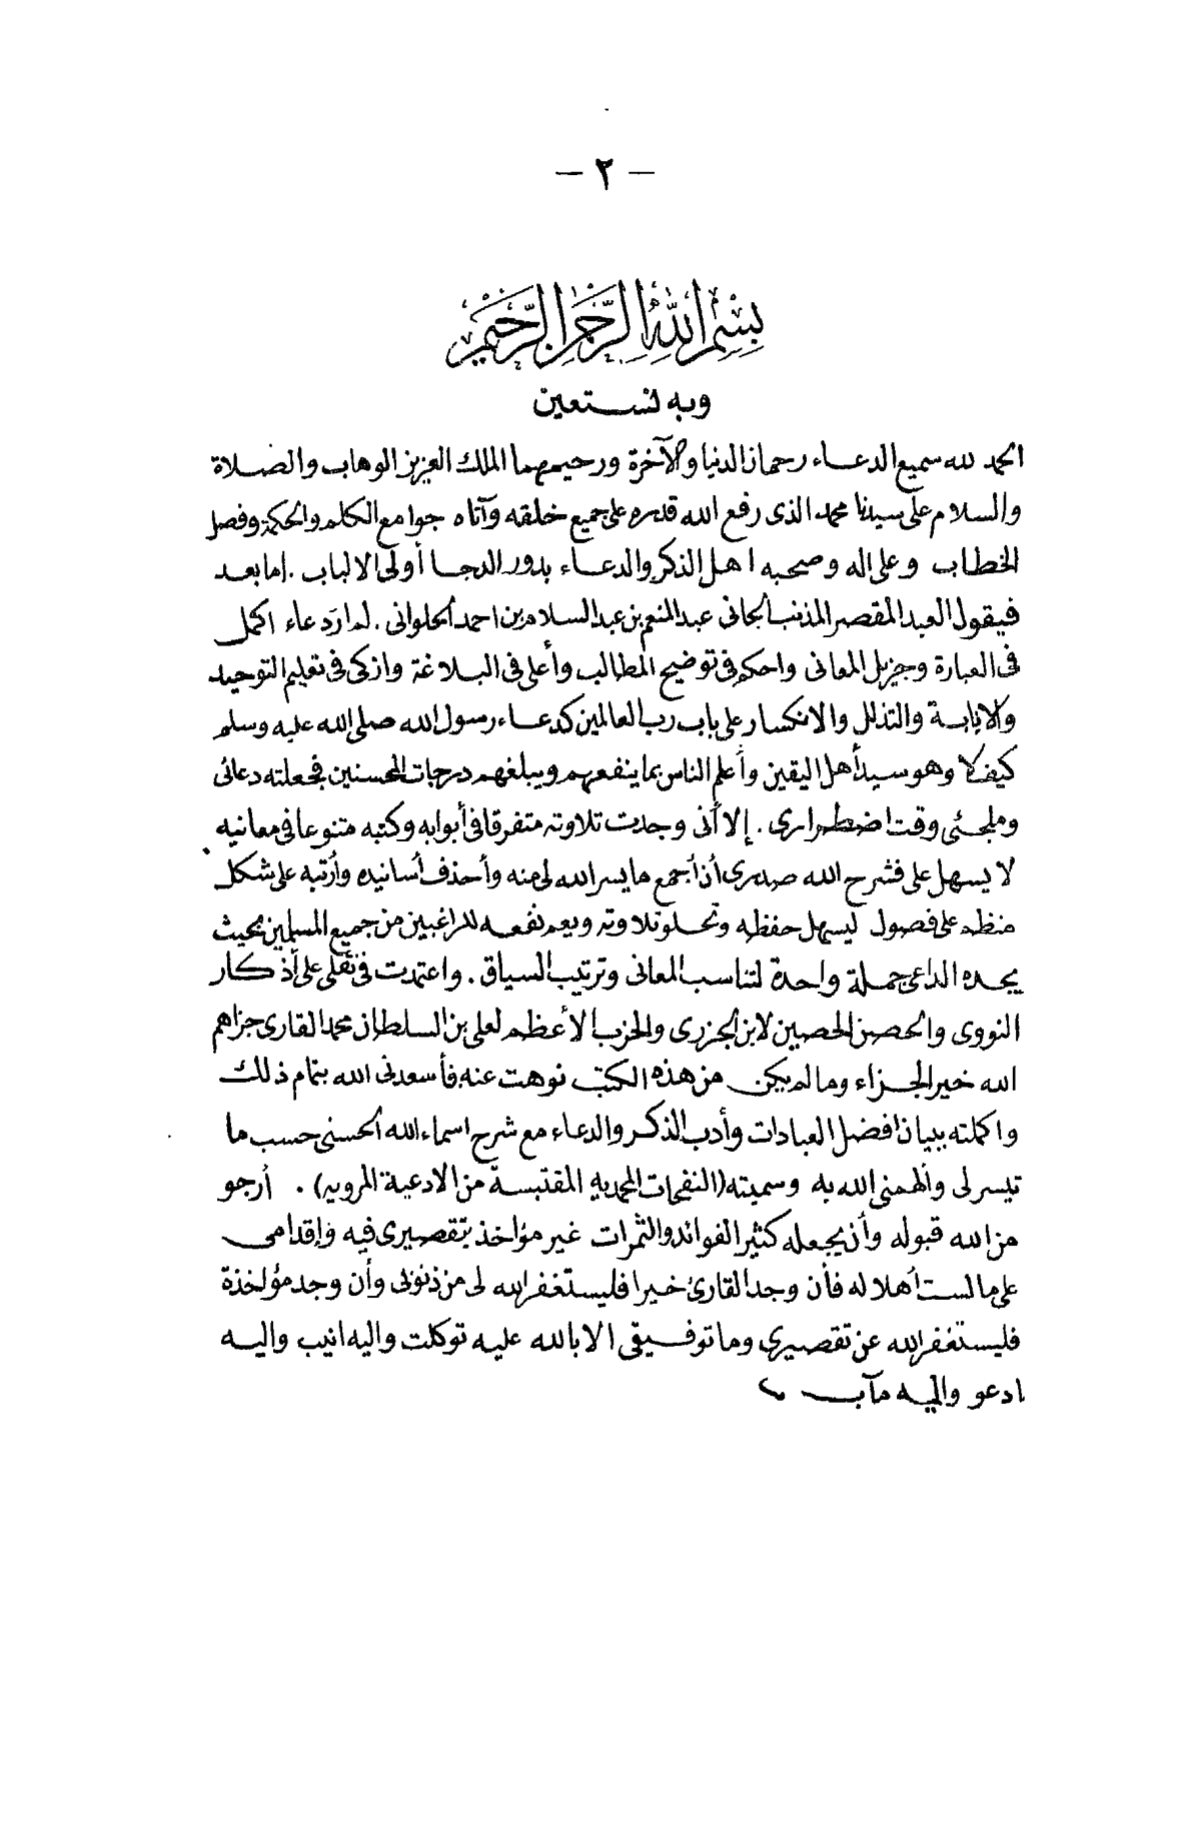 - ٢ -
بسم الله الرحمن الرحيم
وبه نستعين
الحمد لله سميع الدعاء رحمان الدنيا والآخرة ورحيمهما الملك العزيز الوهاب والصلاة
والسلام على سيدنا محمد الذى رفع الله قدره على جميع خلقه وآتاه جوامع الكلم والحكمة وفصل
الخطاب وعلى اله وصحبه اهل الذكر والدعاء بدور الدجا أولى الالباب . اما بعد
فيقول العبد المقصر المذنب الجانى عبد المنعم بن عبد السلام بن احمد الحلوانى . لم ار دعاء اكمل
فى العبارة وجزيل المعانى واحكم فى توضيح المطالب وأعلى فى البلاغة وازكى فى تعليم التوحيد
والانابة والتذلل والانكسار على باب رب العالمين كدعاء رسول الله صلى الله عليه وسلم
كيف لا وهو سيد أهل اليقين وأعلم الناس بما ينفعهم ويبلغهم درجات المحسنين فجعلته دعائى
وملجئى وقت اضطرارى . إلا أنى وجدت تلاوته متفرقا فى أبوابه وكتبه متنوعا فى معانيه
لا يسهل على فشرح الله صدرى أن أجمع ما يسر الله لى منه وأحذف أسانيده وأرتبه على شكل
منظم على فصول ليسهل حفظه وتحلو تلاوته ويعم نفعه للراغبين من جميع المسلمين بحيث
يجده الداعى جملة واحدة لتناسب المعانى وترتيب السياق . واعتمدت فى نقلى على أذكار
النووى والحصن الحصين لابن الجزرى والحزب الأعظم لعلى بن السلطان محمد القارى جزاهم
الله خير الجزاء وما لم يكن من هذه الكتب نوهت عنه فأسعدنى الله بتمام ذلك
واكملته ببيان افضل العبادات وأدب الذكر والدعاء مع شرح اسماء الله الحسنى حسب ما
تيسر لى وألهمنى الله به وسميته (النفحات المحمديه المقتبسة من الادعية المرويه) . أرجو
من الله قبوله وأن يجعله كثير الفوائد والثمرات غير مؤاخذ بتقصيرى فيه وإقدامى
على ما لست أهلا له فأن وجد القارئ خيرا فليستغفر الله لى من ذنوبى وأن وجد مؤاخذة
فليستغفر الله عن تقصيرى وما توفيقى الا بالله عليه توكلت واليه انيب واليه
ادعو واليه مآب